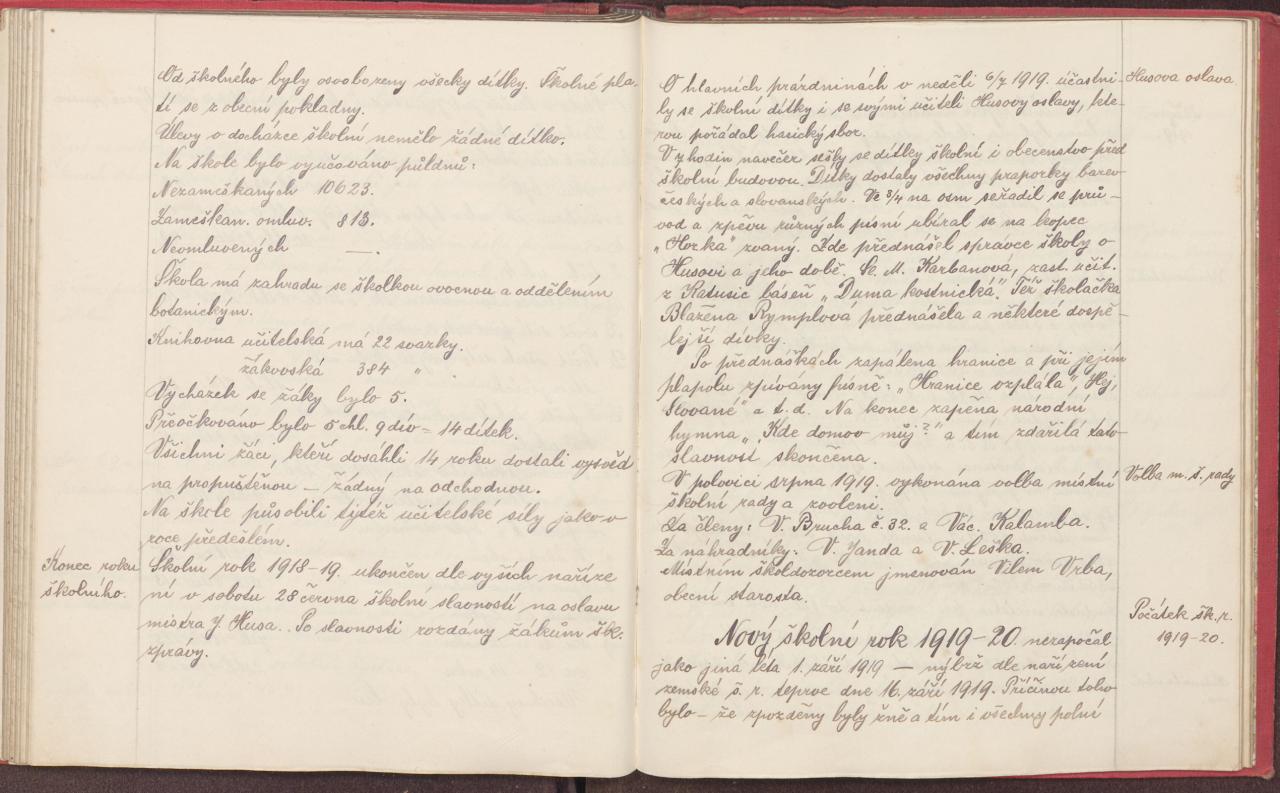 Od školného byly osvobozeny všecky dítky. Školné pla-
tí se z obecní pokladny.
Úlevy v docházce školní nemělo žádné dítko.
Na škole bylo vyučováno půldnů:
Nezameškaných 10623.
Zameškan. omluv. 813.
Neomluvených —.
Škola má zahradu se školkou ovocnou a oddělením
botanickým.
Knihovna učitelská má 22 svazky.
žákovská 384 „ .
Vycházek se žáky bylo 5.
Přeočkováno bylo 5 chl. 9 dív = 14 dítek.
Všichni žáci, kteří dosáhli 14 roku dostali vysvěd
na propuštěnou — žádný na odchodnou.
Na škole působili tytéž učitelské síly jako v
roce předešlém.
Konec roku
školního.
Školní rok 1918-19. ukončen dle vyších naříze
ní v sobotu 28 června školní slavností na oslavu
mistra J. Husa. Po slavnosti rozdány žákům šk.
zprávy.
O hlavních prázdninách v neděli 6/7 1919. účastni-
ly se školní dítky i se svými učiteli Husovy oslavy, kte-
rou pořádal hasický sbor.
Husova oslava.
V 7 hodin navečer sešly se dítky školní i obecenstvo před
školní budovou. Dítky dostaly všechny praporky barev
českých a slovanských. Ve 3/4 na osm seřadil se prů-
vod a zpěvu různých písní ubíral se na kopec
„Horka" zvaný. Zde přednášel správce školy o
Husovi a jeho době. Sl. M. Karbanová, zast. učit.
z Katusic báseň „Duma kostnická". Též školačka
Blažena Rymplová přednášela a některé dospě-
lejší dívky.
Po přednáškách zapálena hranice a při jejím
plapolu zpívány písně: „Hranice vzplála", „Hej,
Slované" a t. d. Na konec zapěna národní
hymna „Kde domov můj?" a tím zdařilá tato
slavnost skončena.
V polovici srpna 1919. vykonána volba místní
školní rady a zvoleni.
Volba m. š. rady
Za členy: V. Brucha č. 32. a Vác. Kalamba.
Za náhradníky: V. Janda a V. Leška.
Místním školdozorcem jmenován Vilem Vrba,
obecní starosta.
Počátek šk. r.
1919-20.
Nový školní rok 1919-20. nezapočal
jako jiná léta 1. září 1919 — nýbrž dle nařízení
zemské š. r. teprve dne 16. září 1919. Příčinou toho
bylo — že zpozděny byly žně a tím i všechny polní